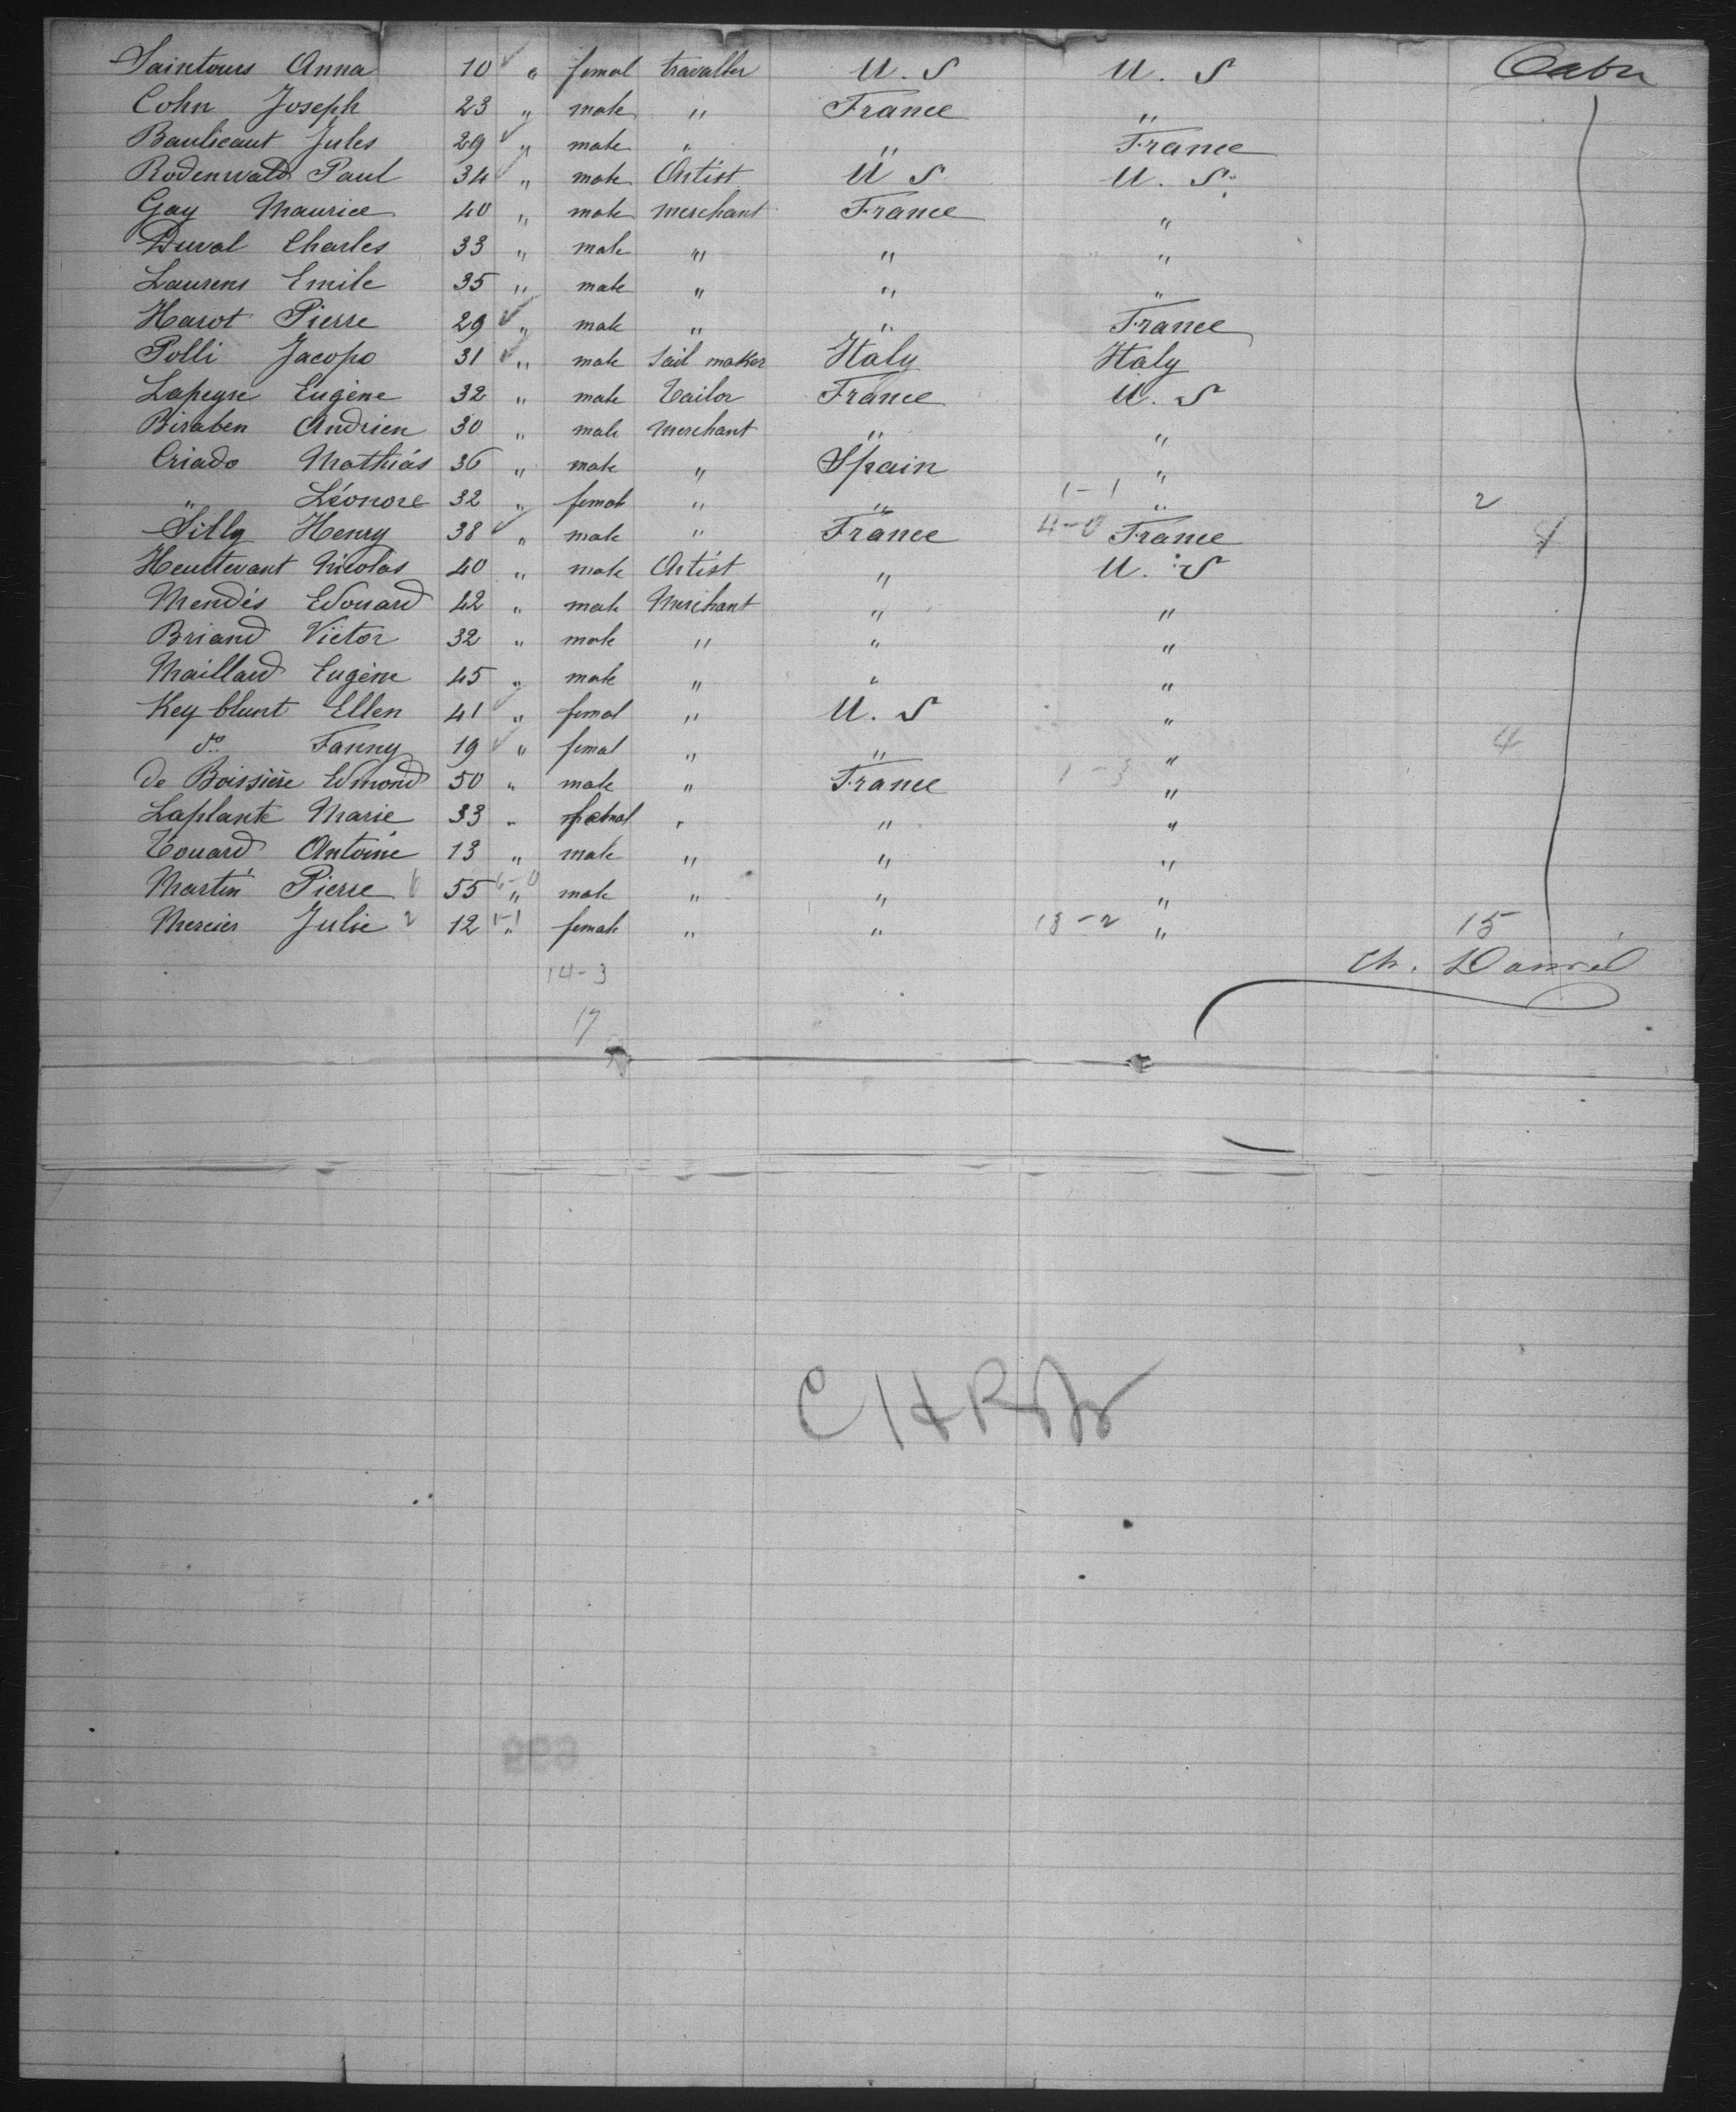 Saintours Anna 10 " femal travaller U. S U. S Cabin
Cohn Joseph 23 " male " France "
Baulieaut Jules 29 " male " " France
Rodenwald Paul 34 " male Artist U S U. S.
Gay Maurice 40 " male merchant France "
Duval Charles 33 " male " " "
Laurens Emile 35 " male " " "
Harot Pierre 29 " male " " France
Polli Jacopo 31 " male Sail maker Italy Italy
Lapeyre Eugène 32 " male Tailor France U. S
Biraben Andrien 30 " male Merchant " "
Criado Mathiás 36 " male " Spain "
" Léonore 32 " femal " " 1-1 " 2
Silly Henry 38 " male " France 4-0 France
Heurtevant Nicolas 40 " male Artist " U. S
Mendès Edouard 42 " male Merchant " "
Briand Victor 32 " male " " "
Maillard Eugène 45 " male " " "
Key blunt Ellen 41 " femal " U. S "
do Fanny 19 " femal " " " 4
de Boissière Edmond 50 " male " France 1-3 "
Laplante Marie 33 " femal " " "
Touard Antoine 13 " male " " "
Martin Pierre 55 " male " " "
Mercier Julie 2 12 1-1 " female " " 13-2 " 15
14-3 Ch. Daniel
17
699